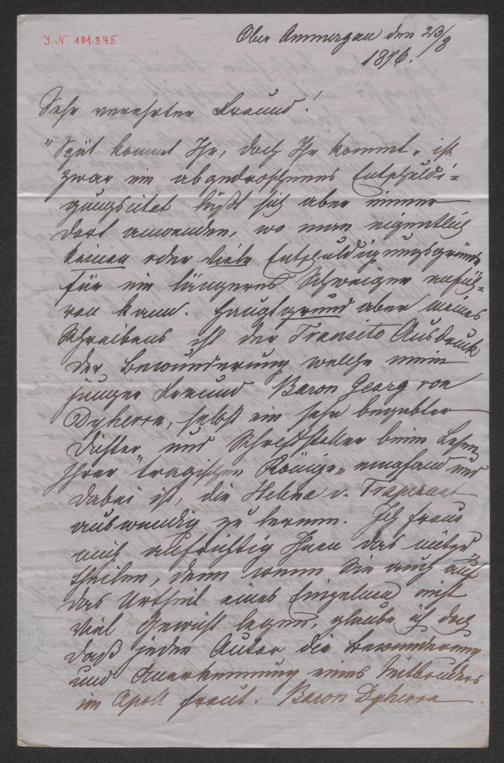 J. N. 101.945
Ober Ammergau den 23/8
1876.
Sehr verehrter Freund!
"Spät kommt Ihr, doch Ihr kommt" ist
zwar ein abgedroschenes Entschuldi-
gungscitat läßt sich aber immer
dort anwenden, wo man eigentlich
keinen oder viele Entschuldigungsgründe
für ein längeres Schweigen anfüh-
ren kann. Hauptgrund aber meines
Schreibens ist der Transito Ausdruck
der Bewunderung welche mein
junger Freund Baron Georg von
Dyherrn, selbst ein sehr begabter
Dichter und Schriftsteller beim Lesen
Ihrer "tragischen Könige" empfand und
dabei ist, die Helena v. Trapezunt
auswendig zu lernen. Ich freue
mich aufrichtig Ihnen das mitzu
theilen, denn wenn Sie auch auf
das Urtheil eines Einzelnen nicht
viel Gewicht legen, glaube ich doch
daß jeden Autor die Bewunderung
und Anerkennung eines Mitbruders
in Apoll freut. Baron Dyherrn